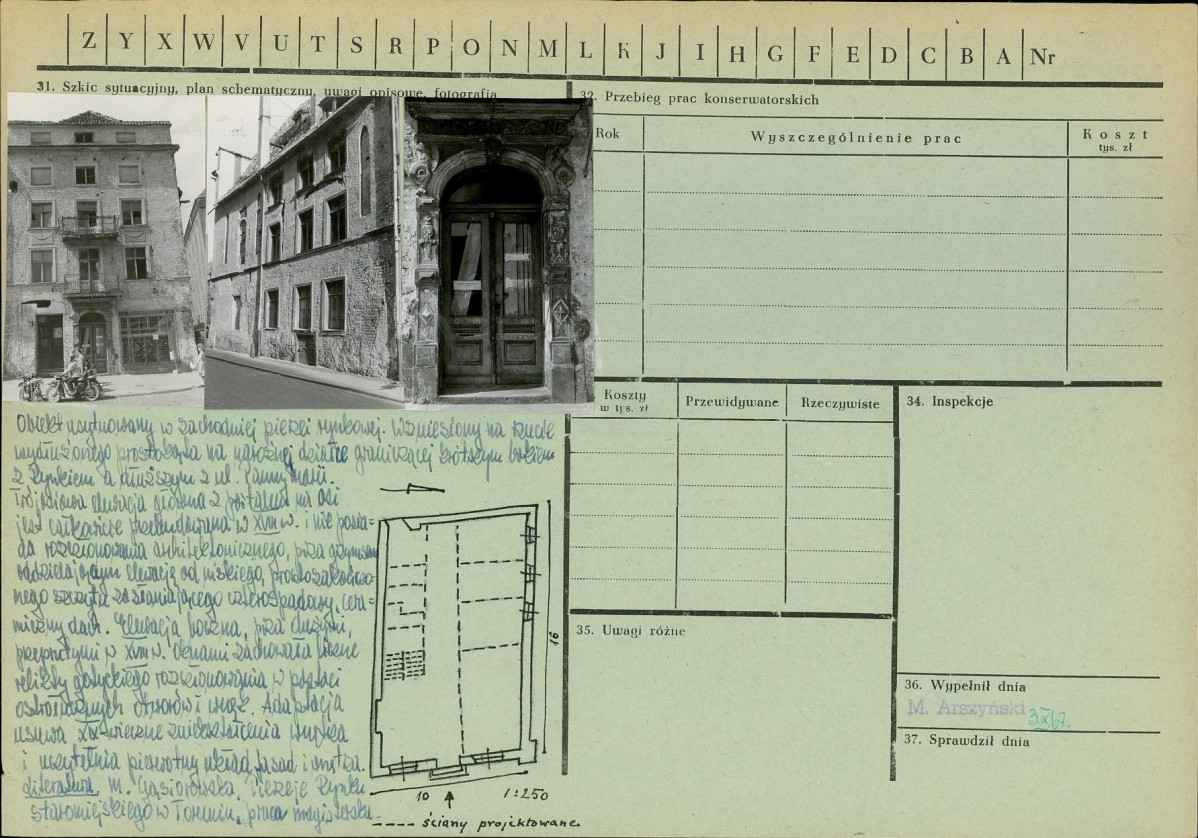 Z Y X W V U T S R P O N M L K J I H G F E D C B A Nr
31. Szkic sytuacyjny, plan schematyczny, uwagi opisowe, fotografia
32. Przebieg prac konserwatorskich
Rok Wyszczególnienie prac Koszt
tys. zł
Obiekt usytuowany w zachodniej pierzei rynkowej. Wzniesiony na rzucie
wydłużonego prostokąta na narożnej działce graniczącej krótszym bokiem
z Rynkiem a dłuższym z ul. Panny Marii.
Trójosiowa elewacja główna z portalem na osi
jest całkowicie przebudowana w XVIII w. i nie posia-
da rozczłonkowania architektonicznego, poza gzymsem
oddzielającym elewację od niskiego, prostozakończo-
nego szczytu zasłaniającego czterospadowy, cera-
miczny dach. Elewacja boczna, poza dużymi,
przeprutymi w XVIII w. oknami zachowała liczne
relikty gotyckiego rozczłonkowania w postaci
ostrołucznych otworów i wnęk. Adaptacja
usuwa XIX-wieczne zniekształcenia wnętrza
i uczytelnia pierwotny układ fasad i wnętrza.
Literatura, M. Gąsiorowska, Pierzeje Rynku
Staromiejskiego w Toruniu, praca magisterska.
16
10 1:250
---- ściany projektowane
Koszty
w tys. zł
Przewidywane
Rzeczywiste
34. Inspekcje
35. Uwagi różne
36. Wypełnił dnia
M. Arszyński 3.X.67.
37. Sprawdził dnia